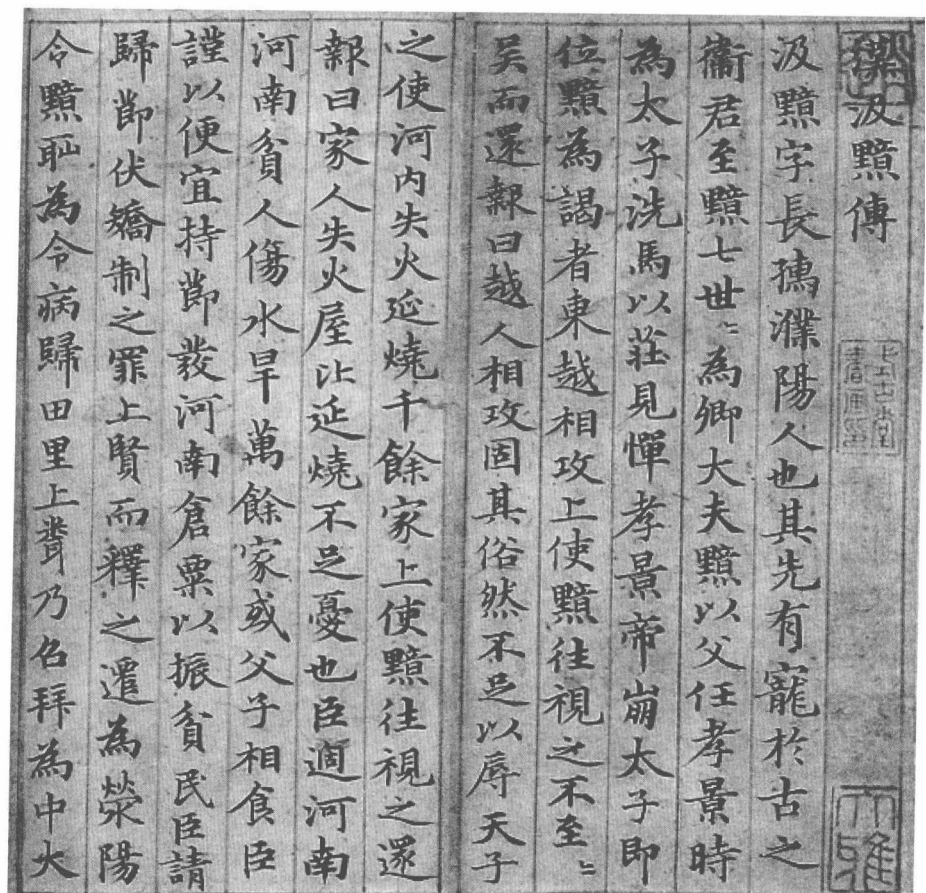 汲黯傳
汲黯字長孺濮陽人也其先有寵於古之
衞君至黯七世〻為卿大夫黯以父任孝景時
為太子洗馬以莊見憚孝景帝崩太子即
位黯為謁者東越相攻上使黯往視之不至〻
吳而還報曰越人相攻固其俗然不足以辱天子
之使河内失火延燒千餘家上使黯往視之還
報曰家人失火屋比延燒不足憂也臣過河南
河南貧人傷水旱萬餘家或父子相食臣
謹以便宜持節發河南倉粟以振貧民臣請
歸節伏矯制之罪上賢而釋之遷為滎陽
令黯恥為令病歸田里上聞乃召拜為中大